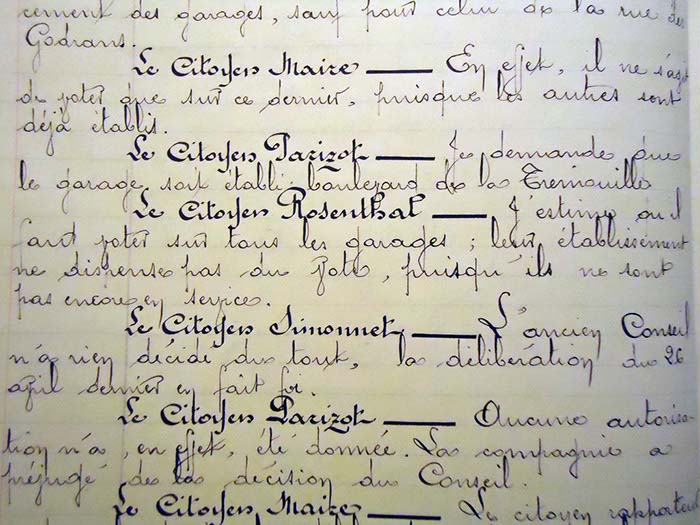 cement des garages, sauf pour celui de la rue des
Godrans.
Le Citoyen Maire — En effet, il ne s'agit
de voter que sur ce dernier, puisque les autres sont
déjà établis.
Le Citoyen Parizot — Je demande que
le garage soit établi boulevard de la Tremouille
Le Citoyen Rosenthal — J'estime qu'il
faut voter sur tous les garages ; leur établissement
ne dispense pas du vote, puisqu'ils ne sont
pas encore en service.
Le Citoyen Simonnet — L'ancien Conseil
n'a rien décidé du tout, la délibération du 26
avril dernier en fait foi.
Le Citoyen Parizot — Aucune autorisa-
tion n'a, en effet, été donnée. La compagnie a
préjugé de la décision du Conseil.
Le Citoyen Maire — Le citoyen rapporteur